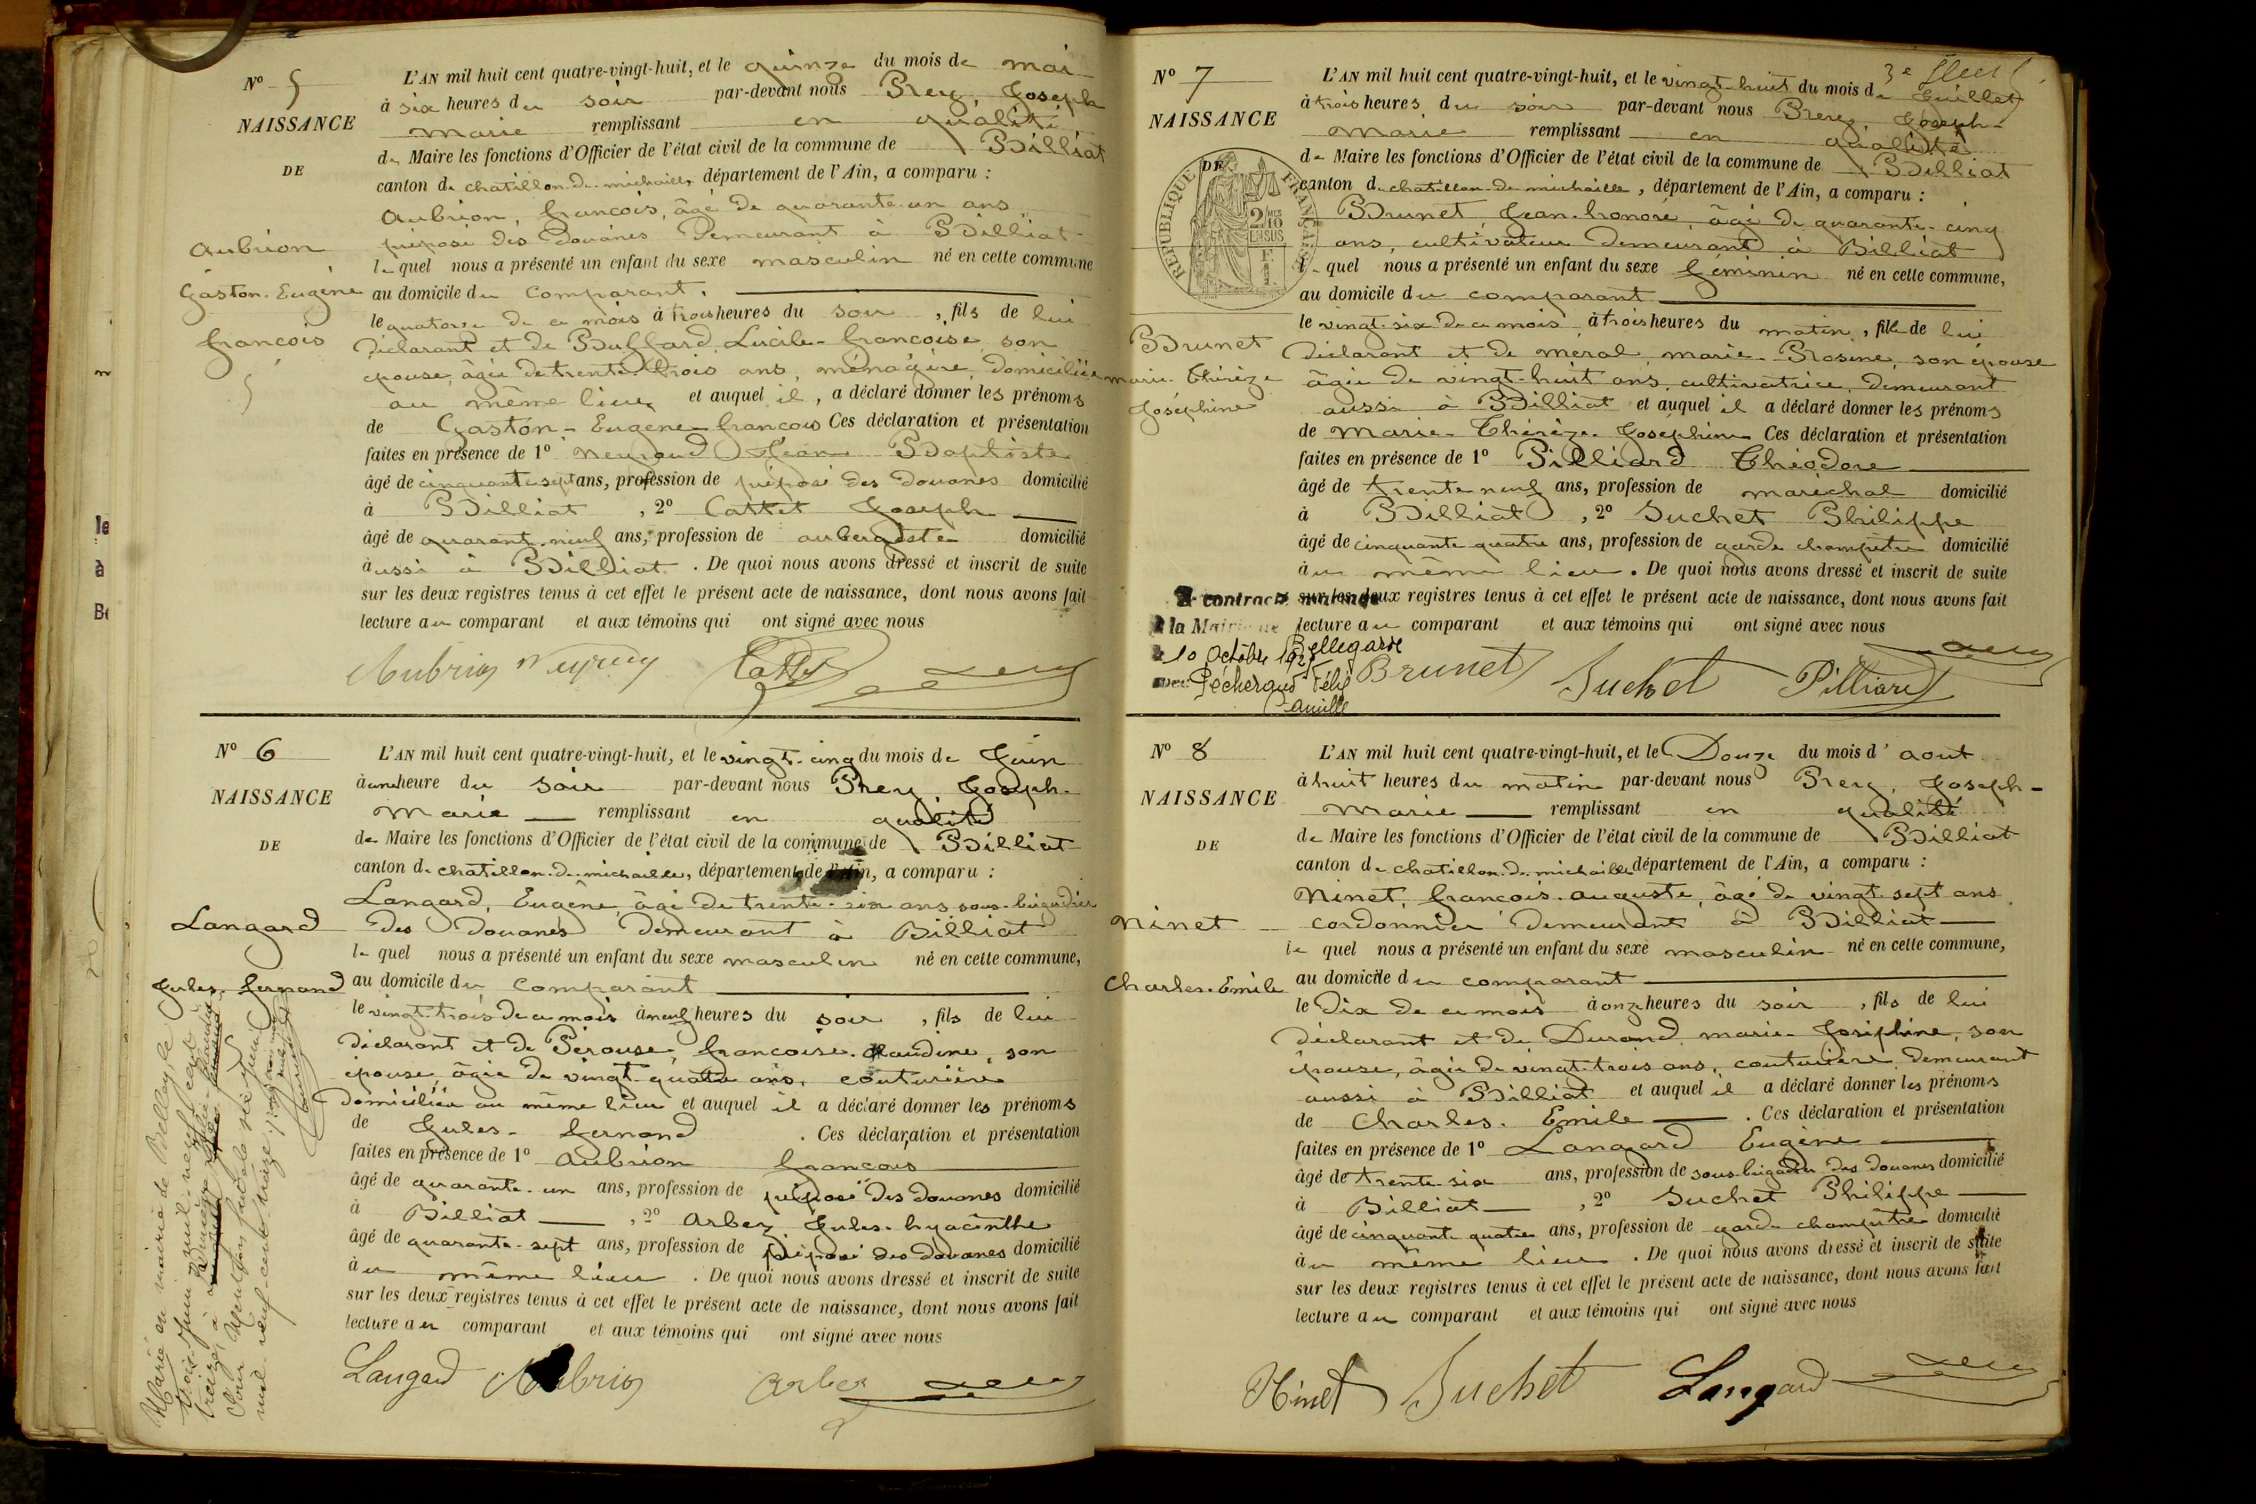 N° 5
NAISSANCE
DE
Aubrion
Gaston-Eugène
françois
L'AN mil huit cent quatre-vingt-huit, et le quinze du mois de mai
à six heures du soir par-devant nous Prey Joseph
marie remplissant en qualité
de Maire les fonctions d'Officier de l'état civil de la commune de Billiat
canton de chatillon-de-michaille, département de l'Ain, a comparu :
Aubrion, françois, âgé de quarante-un ans
préposé des douanes demeurant à Billiat
lequel nous a présenté un enfant du sexe masculin né en cette commune
au domicile du comparant.
le quatorze de ce mois à trois heures du soir, fils de lui
déclarant et de Buffard, Lucile-françoise, son
épouse, âgée de trente-trois ans, ménagère, domiciliée
au même lieu, et auquel il, a déclaré donner les prénoms
de Gaston-Eugène-françois Ces déclaration et présentation
faites en présence de 1° Neyroud Jean Baptiste
âgé de cinquante sept ans, profession de préposé des douanes domicilié
à Billiat, 2° Cattet Joseph
âgé de quarante-neuf ans, profession de aubergiste domicilié
aussi à Billiat. De quoi nous avons dressé et inscrit de suite
sur les deux registres tenus à cet effet le présent acte de naissance, dont nous avons fait
lecture au comparant et aux témoins qui ont signé avec nous
Aubrion
N° 6
NAISSANCE
DE
Langard
Jules-fernand
L'AN mil huit cent quatre-vingt-huit, et le vingt-cinq du mois de Juin
à une heure du soir par-devant nous Prey Joseph-
marie remplissant en qualité
de Maire les fonctions d'Officier de l'état civil de la commune de Billiat
canton de chatillon-de-michaille, département de l'Ain, a comparu :
Langard, Eugène, âgé de trente-six ans sous-brigadier
des douanes demeurant à Billiat
lequel nous a présenté un enfant du sexe masculin né en cette commune,
au domicile du comparant
le vingt-trois de ce mois à neuf heures du soir, fils de lui
déclarant et de Pérouse, françoise-claudine, son
épouse, âgée de vingt-quatre ans, couturière
domiciliée au même lieu et auquel il a déclaré donner les prénoms
de Jules-fernand. Ces déclaration et présentation
faites en présence de 1° Aubrion françois
âgé de quarante-un ans, profession de préposé des douanes domicilié
à Billiat, 2° Arbez Jules-hyacinthe
âgé de quarante-sept ans, profession de préposé des douanes domicilié
au même lieu. De quoi nous avons dressé et inscrit de suite
sur les deux registres tenus à cet effet le présent acte de naissance, dont nous avons fait
lecture au comparant et aux témoins qui ont signé avec nous
Langard Aubrion Arbez
Marié en mairie de Belley, le
trois Juin mil-neuf cent
treize, à
Pour Mention faite le six Juin
mil neuf-cent-treize
N° 7
NAISSANCE
DE
RÉPUBLIQUE FRANÇAISE
Brunet
marie-Thérèze
Joséphine
3e feuillet
L'AN mil huit cent quatre-vingt-huit, et le vingt-huit du mois de Juillet
à trois heures du soir par-devant nous Prey Joseph-
marie remplissant en qualité
de Maire les fonctions d'Officier de l'état civil de la commune de Billiat
canton de chatillon-de-michaille, département de l'Ain, a comparu :
Brunet Jean-honoré âgé de quarante-cinq
ans, cultivateur demeurant à Billiat
lequel nous a présenté un enfant du sexe féminin né en cette commune,
au domicile du comparant
le vingt-six de ce mois à trois heures du matin, fille de lui
déclarant et de méral, marie-Rosine, son épouse
âgée de vingt-huit ans, cultivatrice, demeurant
aussi à Billiat et auquel il a déclaré donner les prénoms
de Marie-Thérèze-Joséphine Ces déclaration et présentation
faites en présence de 1° Pilliard Théodore
âgé de trente neuf ans, profession de maréchal domicilié
à Billiat, 2° Suchet Philippe
âgé de cinquante quatre ans, profession de garde champêtre domicilié
au même lieu. De quoi nous avons dressé et inscrit de suite
sur les deux registres tenus à cet effet le présent acte de naissance, dont nous avons fait
lecture au comparant et aux témoins qui ont signé avec nous
A contracté mariage
à la Mairie de Bellegarde
le 10 Octobre
avec Pécheraud Félix
Camille
Brunet Suchet Pilliard
N° 8
NAISSANCE
DE
Ninet
Charles-Emile
L'AN mil huit cent quatre-vingt-huit, et le Douze du mois d'aout
à huit heures du matin par-devant nous Prey, Joseph-
Marie remplissant en qualité
de Maire les fonctions d'Officier de l'état civil de la commune de Billiat
canton de chatillon-de-michaille département de l'Ain, a comparu :
Ninet, françois-auguste, âgé de vingt-sept ans
cordonnier demeurant à Billiat
lequel nous a présenté un enfant du sexe masculin né en cette commune,
au domicile du comparant
le dix de ce mois à onze heures du soir, fils de lui
déclarant et de Durand, marie-Joséphine, son
épouse, âgée de vingt-trois ans, couturière, demeurant
aussi à Billiat et auquel il a déclaré donner les prénoms
de Charles-Emile. Ces déclaration et présentation
faites en présence de 1° Langard Eugène
âgé de trente-six ans, profession de sous-brigadier des douanes domicilié
à Billiat, 2° Suchet Philippe
âgé de cinquante quatre ans, profession de garde champêtre domicilié
au même lieu. De quoi nous avons dressé et inscrit de suite
sur les deux registres tenus à cet effet le présent acte de naissance, dont nous avons fait
lecture au comparant et aux témoins qui ont signé avec nous
Ninet Suchet Langard